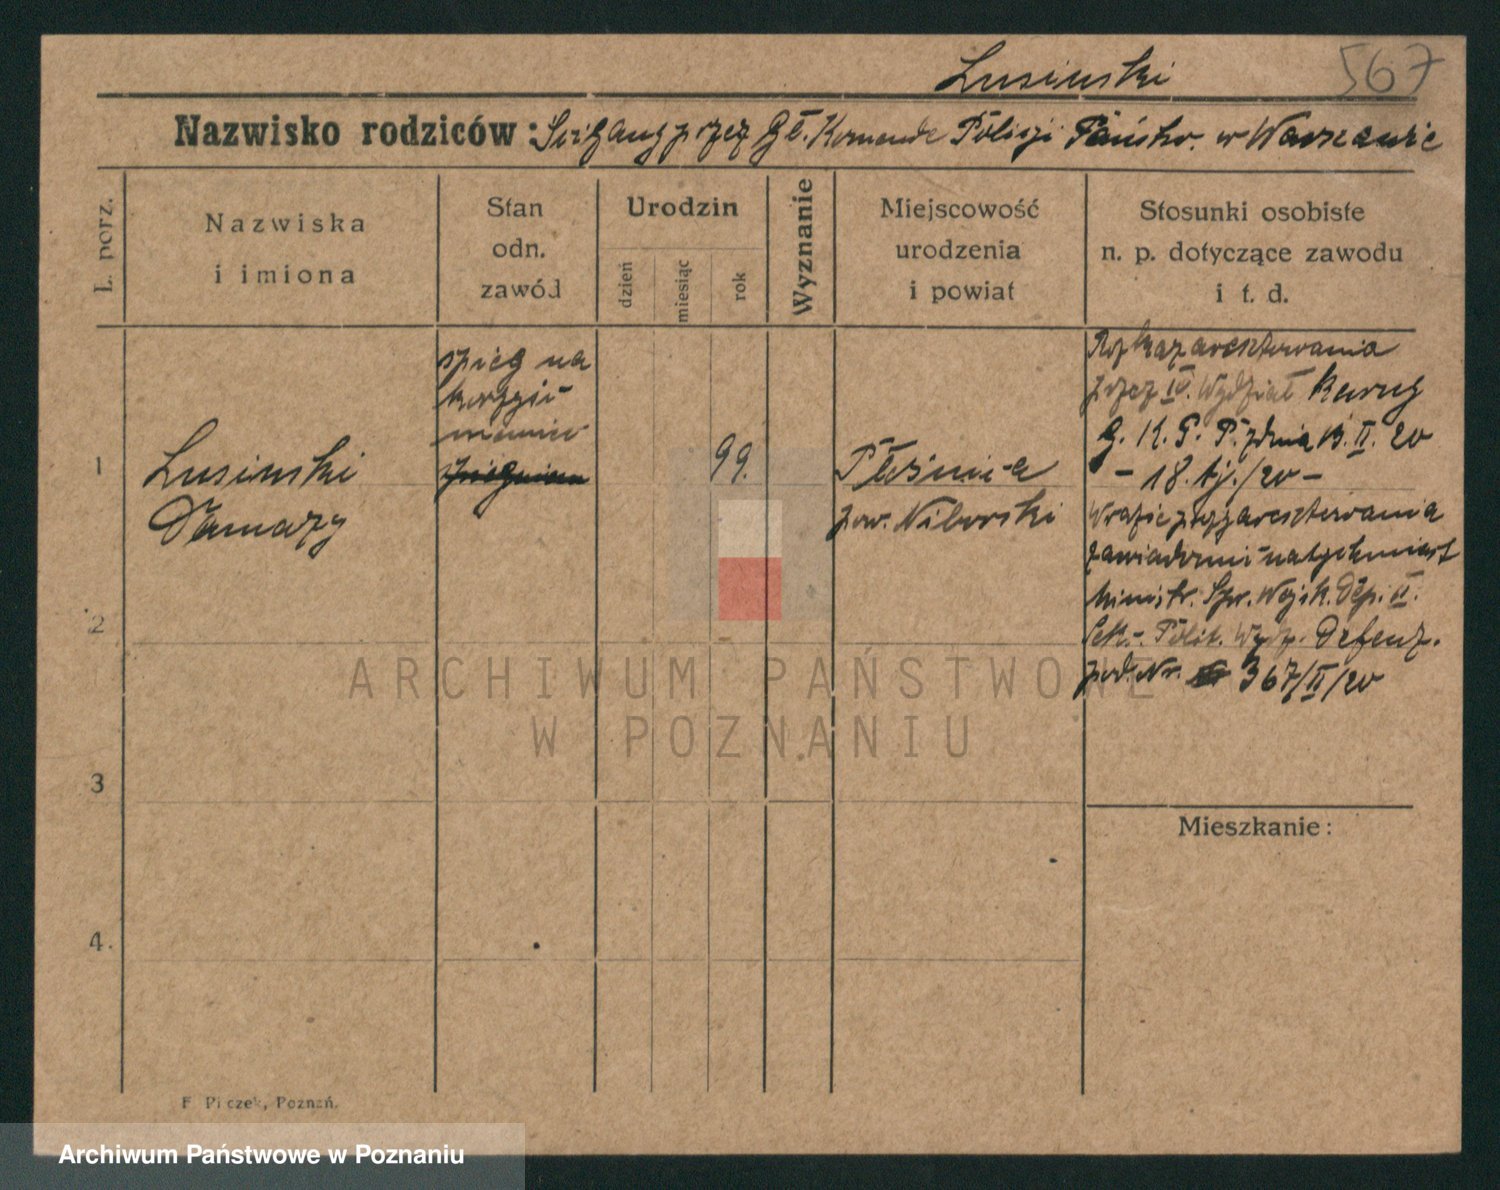 Lusinski
567
Nazwisko rodziców: Ścigany przez Gł. Komendę Policji Państw. w Warszawie
L. porz.
Nazwiska
i imiona
Stan
odn.
zawód
Urodzin
dzień
miesiąc
rok
Wyznanie
Miejscowość
urodzenia
i powiat
Stosunki osobiste
n. p. dotyczące zawodu
i t. d.
1
Lusinski
Damazy
szpieg na
korzyść
niemiec
99.
pow. Niborski
Rozkaz aresztowania
przez IV. Wydział
G. K. P. P. z dnia 13. II. 20
- 18. tj./20 -
W razie przyaresztowania
zawiadomić natychmiast
Minist. Spr. Wojsk. Dep. II.
Sek. Polit. Wydz. Defenz.
pod. Nr. 367/II/20
2
3
4.
Mieszkanie:
F. Pilczek, Poznań.
ARCHIWUM PAŃSTWOWE
W POZNANIU
Archiwum Państwowe w Poznaniu